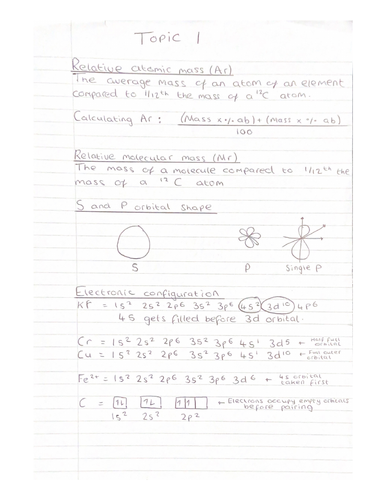 Topic 1
Relative atomic mass (Ar)
The average mass of an atom of an element
compared to 1/12th the mass of a ¹²C atom.
Calculating Ar : (Mass x % ab) + (Mass x % ab)
100
Relative molecular mass (Mr)
The mass of a molecule compared to 1/12th the
mass of a ¹²C atom
S and P orbital shape
S P Single P
Electronic configuration
Kr = 1s² 2s² 2p6 3s² 3p6 4s² 3d¹⁰ 4p6
4S gets filled before 3d orbital.
Cr = 1s² 2s² 2p6 3s² 3p6 4s¹ 3d5 ← Half full orbital
Cu = 1s² 2s² 2p6 3s² 3p6 4s¹ 3d¹⁰ ← Full outer orbital
Fe²⁺ = 1s² 2s² 2p6 3s² 3p6 3d6 ← 4s orbital taken first
C = ↿⇂ ↿⇂ ↿ ↿ ← Electrons occupy empty orbitals before pairing
1s² 2s² 2p²